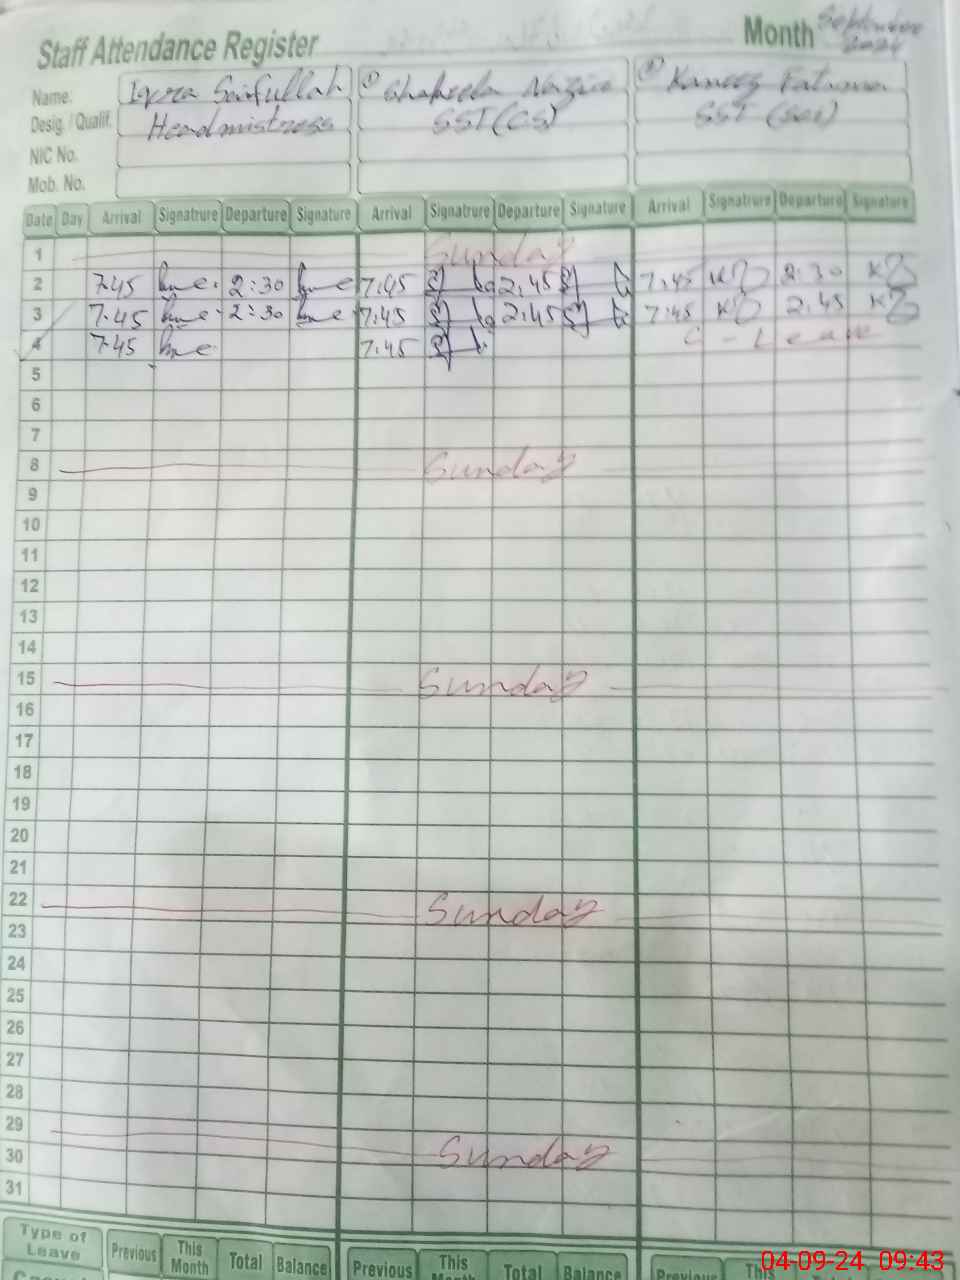 Staff Attendance Register Month September 2024
Name: Iqra Saifullah ① Shakeela Nazir ② Kaneez Fatima
Desig. / Qualif. Headmistress SST (CS) SST (Sci)
NIC No.
Mob. No.
Date Day Arrival Signatrure Departure Signature Arrival Signatrure Departure Signature Arrival Signatrure Departure Signature
1 Sunday
2 7.45 2:30 7:45 2:45 7:45 2:30
3 7.45 2:30 7:45 2:45 7:45 2:45
4 7.45 7:45 C - Leave
5
6
7
8 Sunday
9
10
11
12
13
14
15 Sunday
16
17
18
19
20
21
22 Sunday
23
24
25
26
27
28
29
30 Sunday
31
Type of Leave Previous This Month Total Balance Previous This Month Total Balance Previous This
04-09-24 09:43